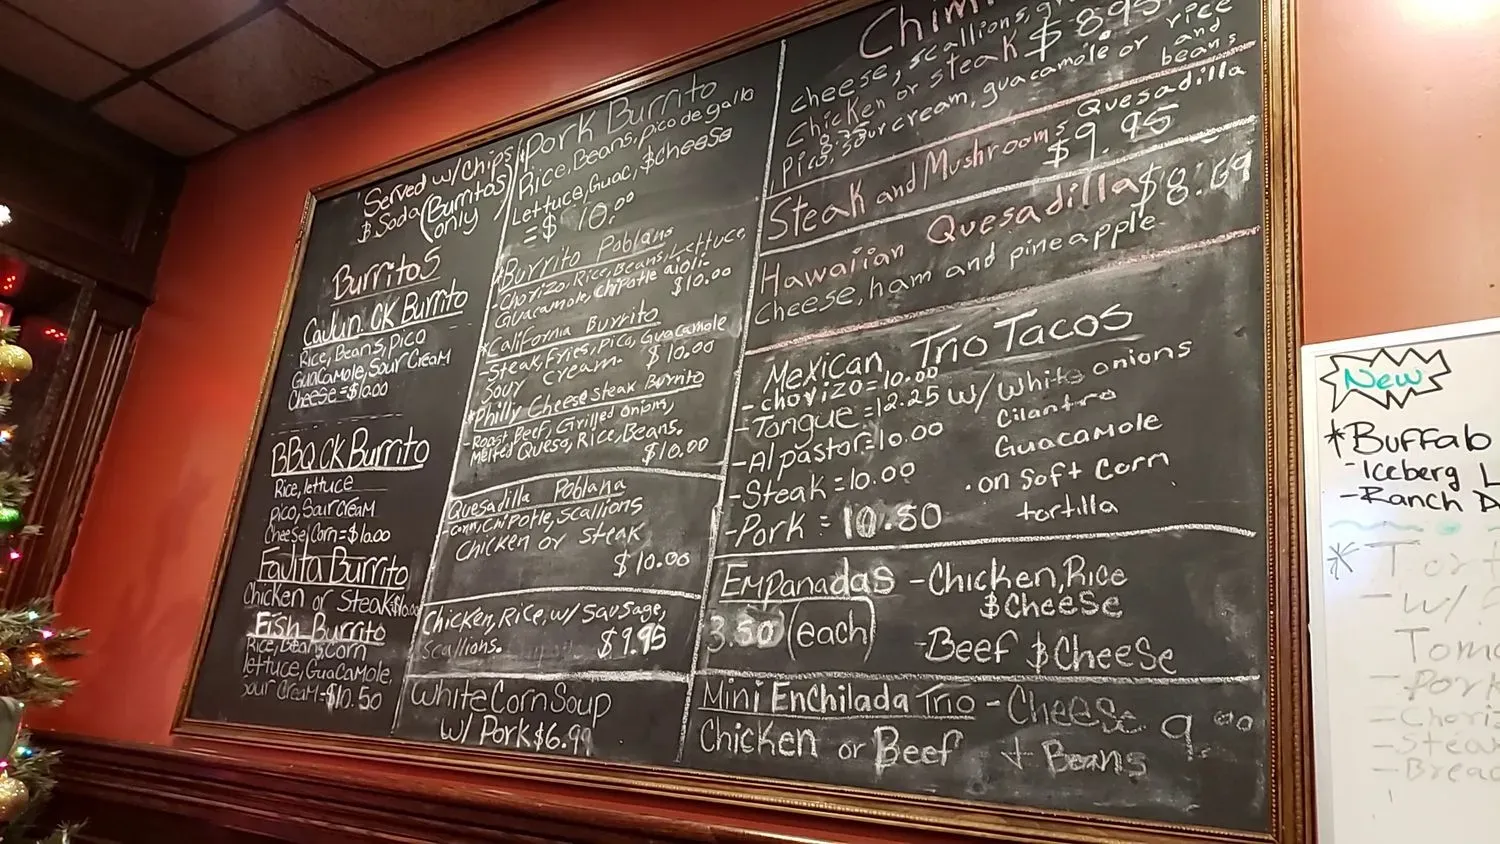 Served w/Chips
$ Soda (Burritos
only)
Burritos
Cajun CK Burrito
Rice, Beans, Pico
Guacamole, Sour Cream
Cheese = $10.00
BBQ CK Burrito
Rice, lettuce
pico, Sour cream
Cheese Corn = $10.00
Fajita Burrito
Chicken or Steak
Fish Burrito
Rice, Beans, corn
lettuce, Guacamole,
sour cream = $10.50
*Pork Burrito
Rice, Beans, pico de gallo
Lettuce, Guac, $Cheese
= $ 10.00
*Burrito Poblano
- Chorizo, Rice, Beans, Lettuce,
Guacamole, chipotle aioli-
$10.00
*California Burrito
- Steak, Fries, Pico, Guacamole
Sour Cream. $10.00
*Philly Cheesesteak Burrito
- Roast Beef, Grilled Onions,
melted Queso, Rice, Beans.
$10.00
Quesadilla Poblana
- corn, Chipotle, Scallions
Chicken or Steak
$10.00
Chicken, Rice, w/ Sausage,
Scallions. $9.95
White Corn Soup
w/ Pork $6.99
Chimi
cheese, scallions,
Chicken or steak $8.95
Pico, sour cream, guacamole or rice
and
beans
Steak and Mushrooms Quesadilla
$9.95
Hawaiian Quesadilla $8.69
cheese, ham and pineapple
Mexican Trio Tacos
- chorizo = 10.00
- Tongue = 12.25 w/ white onions
- Al pastor = 10.00 Cilantro
- Steak = 10.00 Guacamole
- Pork = 10.80 . on Soft Corn
tortilla
Empanadas - Chicken, Rice
$ Cheese
3.50 (each) - Beef $ Cheese
Mini Enchilada Trio - Cheese 9.00
Chicken or Beef + Beans
New
*Buffalo
- Iceberg L
- Ranch
*
- w/
Tom
- Pork
- Choriz
- Stea
- Bread